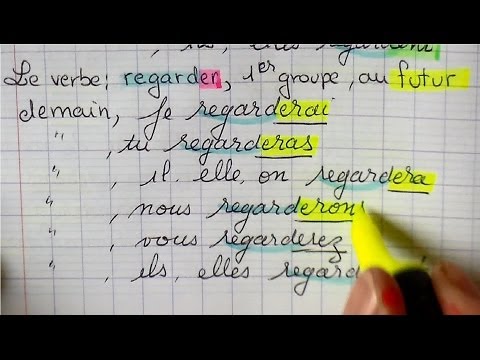 , ils, elles regardent
Le verbe: regarder, 1er groupe, au futur
demain, je regarderai
" , tu regarderas
" , il, elle, on regardera
" , nous regarderons
" , vous regarderez
" , ils, elles regard